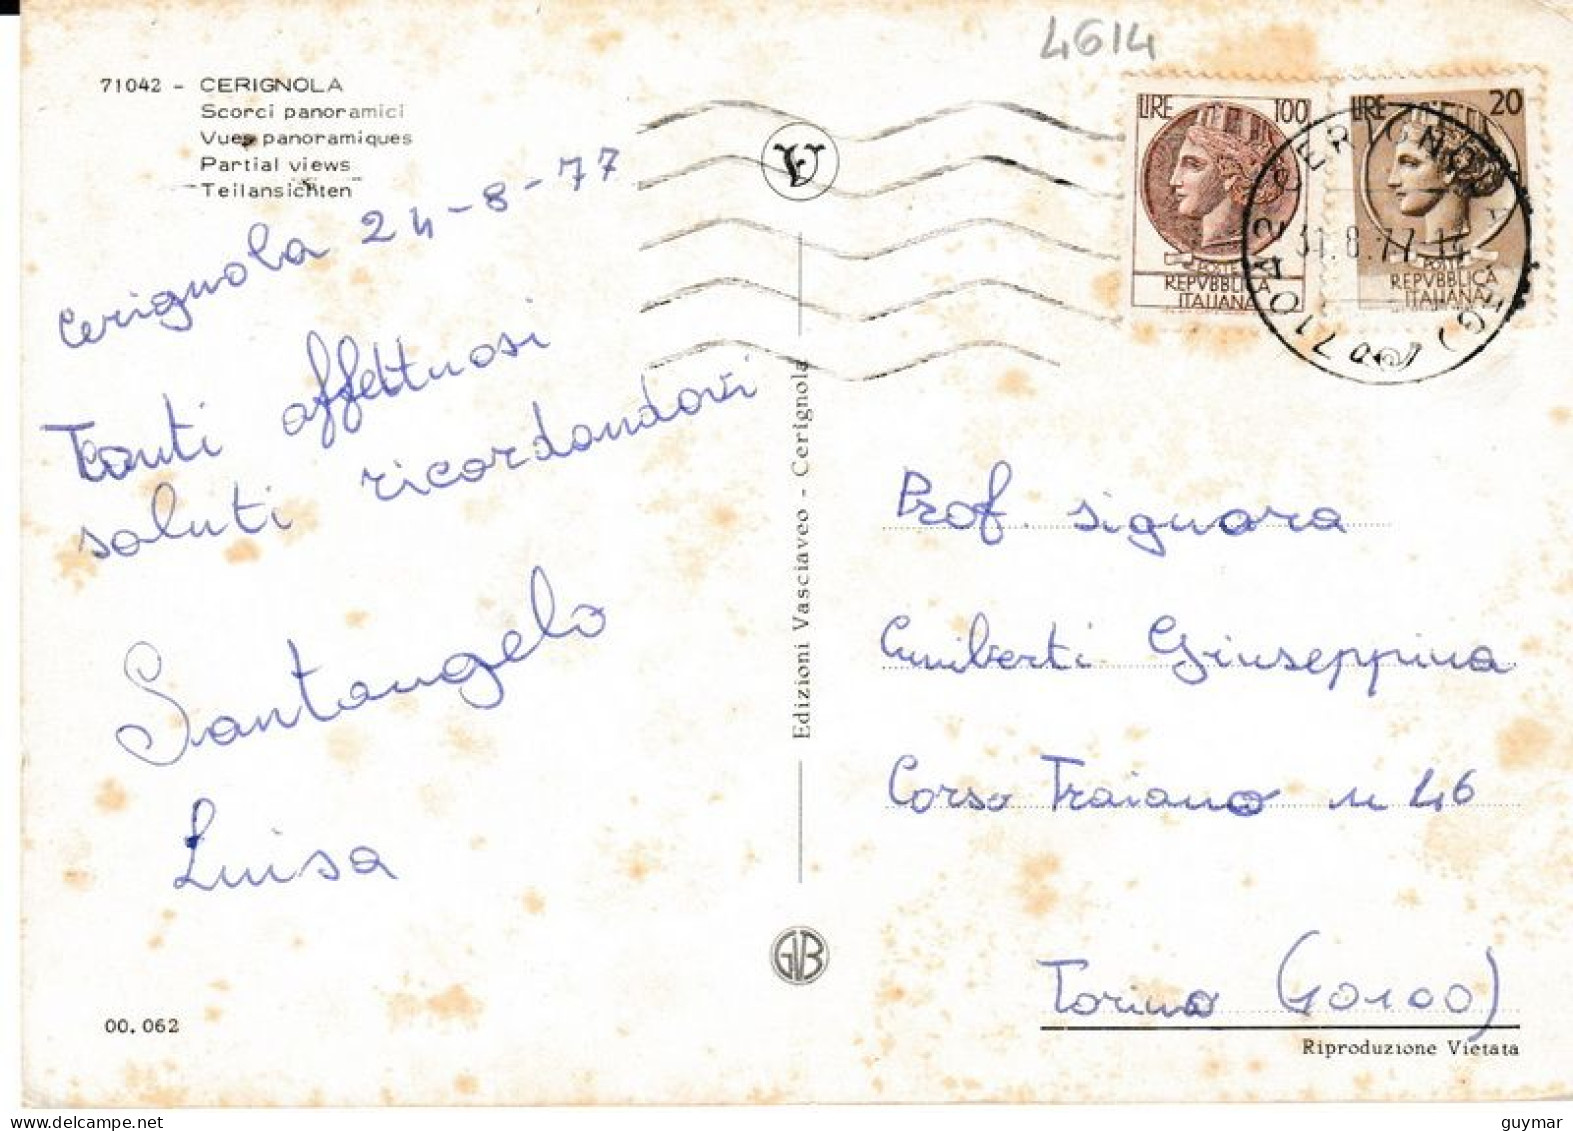 4614
71042 - CERIGNOLA
Scorci panoramici
Vues panoramiques
Partial views
Teilansichten
Cerignola 24-8-77
Tanti affettuosi
saluti ricordandovi
Santangelo
Luisa
00.062
Edizioni Vasciaveo - Cerignola
GVB
LIRE 100
POSTE
REPVBBLICA
ITALIANA
LIRE 20
POSTE
REPVBBLICA
ITALIANA
CERIGNOLA
31.8.77.14
71042
Prof. signora
Cumiberti Giuseppina
Corso Traiano n 46
Torino (10100)
Riproduzione Vietata
guymar